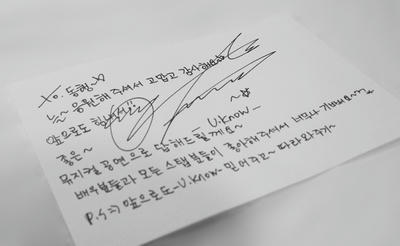 To. 동행~♡
늘~ 응원해 주셔서 고맙고 감사해요
앞으로도 함께
좋은~
뮤지컬 공연으로 답해드릴게요~ - U.Know -
배우분들과 모든 스탭분들이 좋아해주셔서 너무나 기쁘네요~^^
P.S =) 앞으로도 -U.Know- 믿어주고~ 따라와주기~